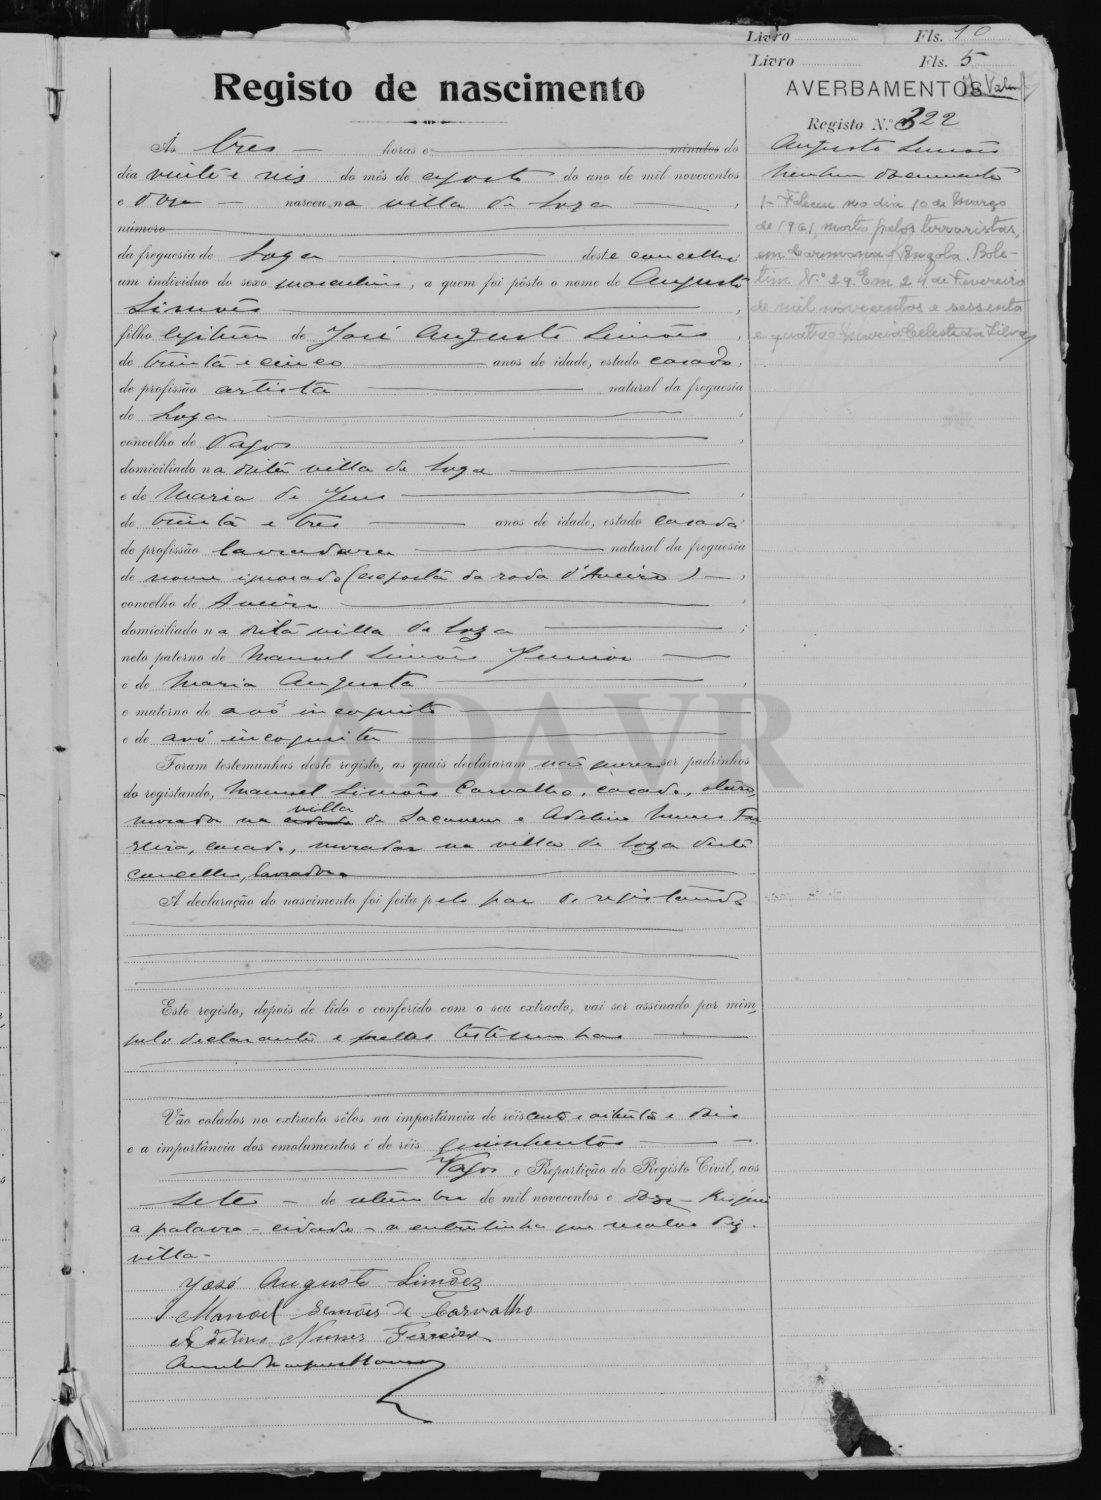 Livro Fls. 10
Livro Fls. 5
Registo de nascimento
AVERBAMENTOS
Registo N.º 322
Augusto Simões
Nenhum documento
1- Faleceu no dia 10 de Março
de 1961, morto pelos terroristas,
em Carmona Angola. Bole-
tim N.º 29. Em 24 de Fevereiro
de mil novecentos e sessenta
e quatro Maria Celeste da Silva
Ás tres horas e minutos do
dia vinte e seis do mês de agosto do ano de mil novecentos
e doze nasceu na villa de Soza
número
da freguesia de Soza deste concelho
um indivíduo do sexo masculino, a quem foi pôsto o nome de Augusto
Simões
filho legitimo de José Augusto Simões,
de trinta e cinco anos de idade, estado casado,
de profissão artista natural da freguesia
de Soza,
concelho de Vagos,
domiciliado na dita villa de Soza
e de Maria de Jesus,
de trinta e tres anos de idade, estado casada
de profissão lavradora natural da freguesia
de nome ignorado (exposta da roda d'Aveiro),
concelho de Aveiro,
domiciliado na dita villa de Soza;
neto paterno de Manuel Simões Junior
e de Maria Augusta,
e materno de avô incognito
e de avó incognita
Foram testemunhas deste registo, as quais declararam não querer ser padrinhos
do registando, Manuel Simões Carvalho, casado, oleiro,
villa
morador na cidade de Sacavem e Adelino Nunes Fer
reira, casado, morador na villa de Soza deste
concelho, lavrador
A declaração do nascimento foi feita pelo pae do registando
Este registo, depois de lido e conferido com o seu extracto, vai ser assinado por mim,
pelo declarante e pellas testemunhas
Vão colados no extracto sêlos na importância de réis cento e oitenta e dois
e a importância dos emolumentos é de réis quinhentos
Vagos e Repartição do Registo Civil, aos
sete de setembro de mil novecentos e doze - Risquei
a palavra - cidade - a entrelinha que resalvo diz -
villa -
José Augusto Simões
Manoel Semões de Carvalho
Adelino Nunes Ferreira
ADAVR